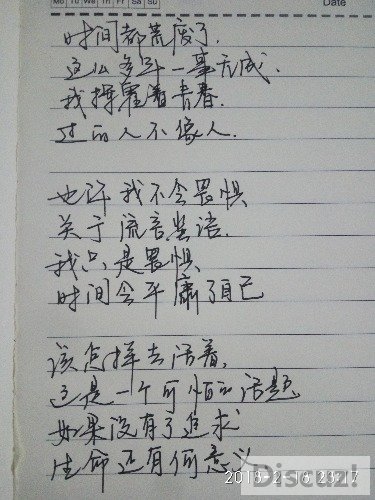 Mo Tu We Th Fr Sa Su Date
时间都荒废了.
这么多年一毫无成.
我挥霍着青春.
过的人不像人.
也许我不会畏惧
关于流言蜚语.
我只是畏惧
时间会平庸了自己
该怎样去活着,
这是一个可怕的话题
如果没有了追求
生命还有何意义
2018-2-18 23:17
Discuz!